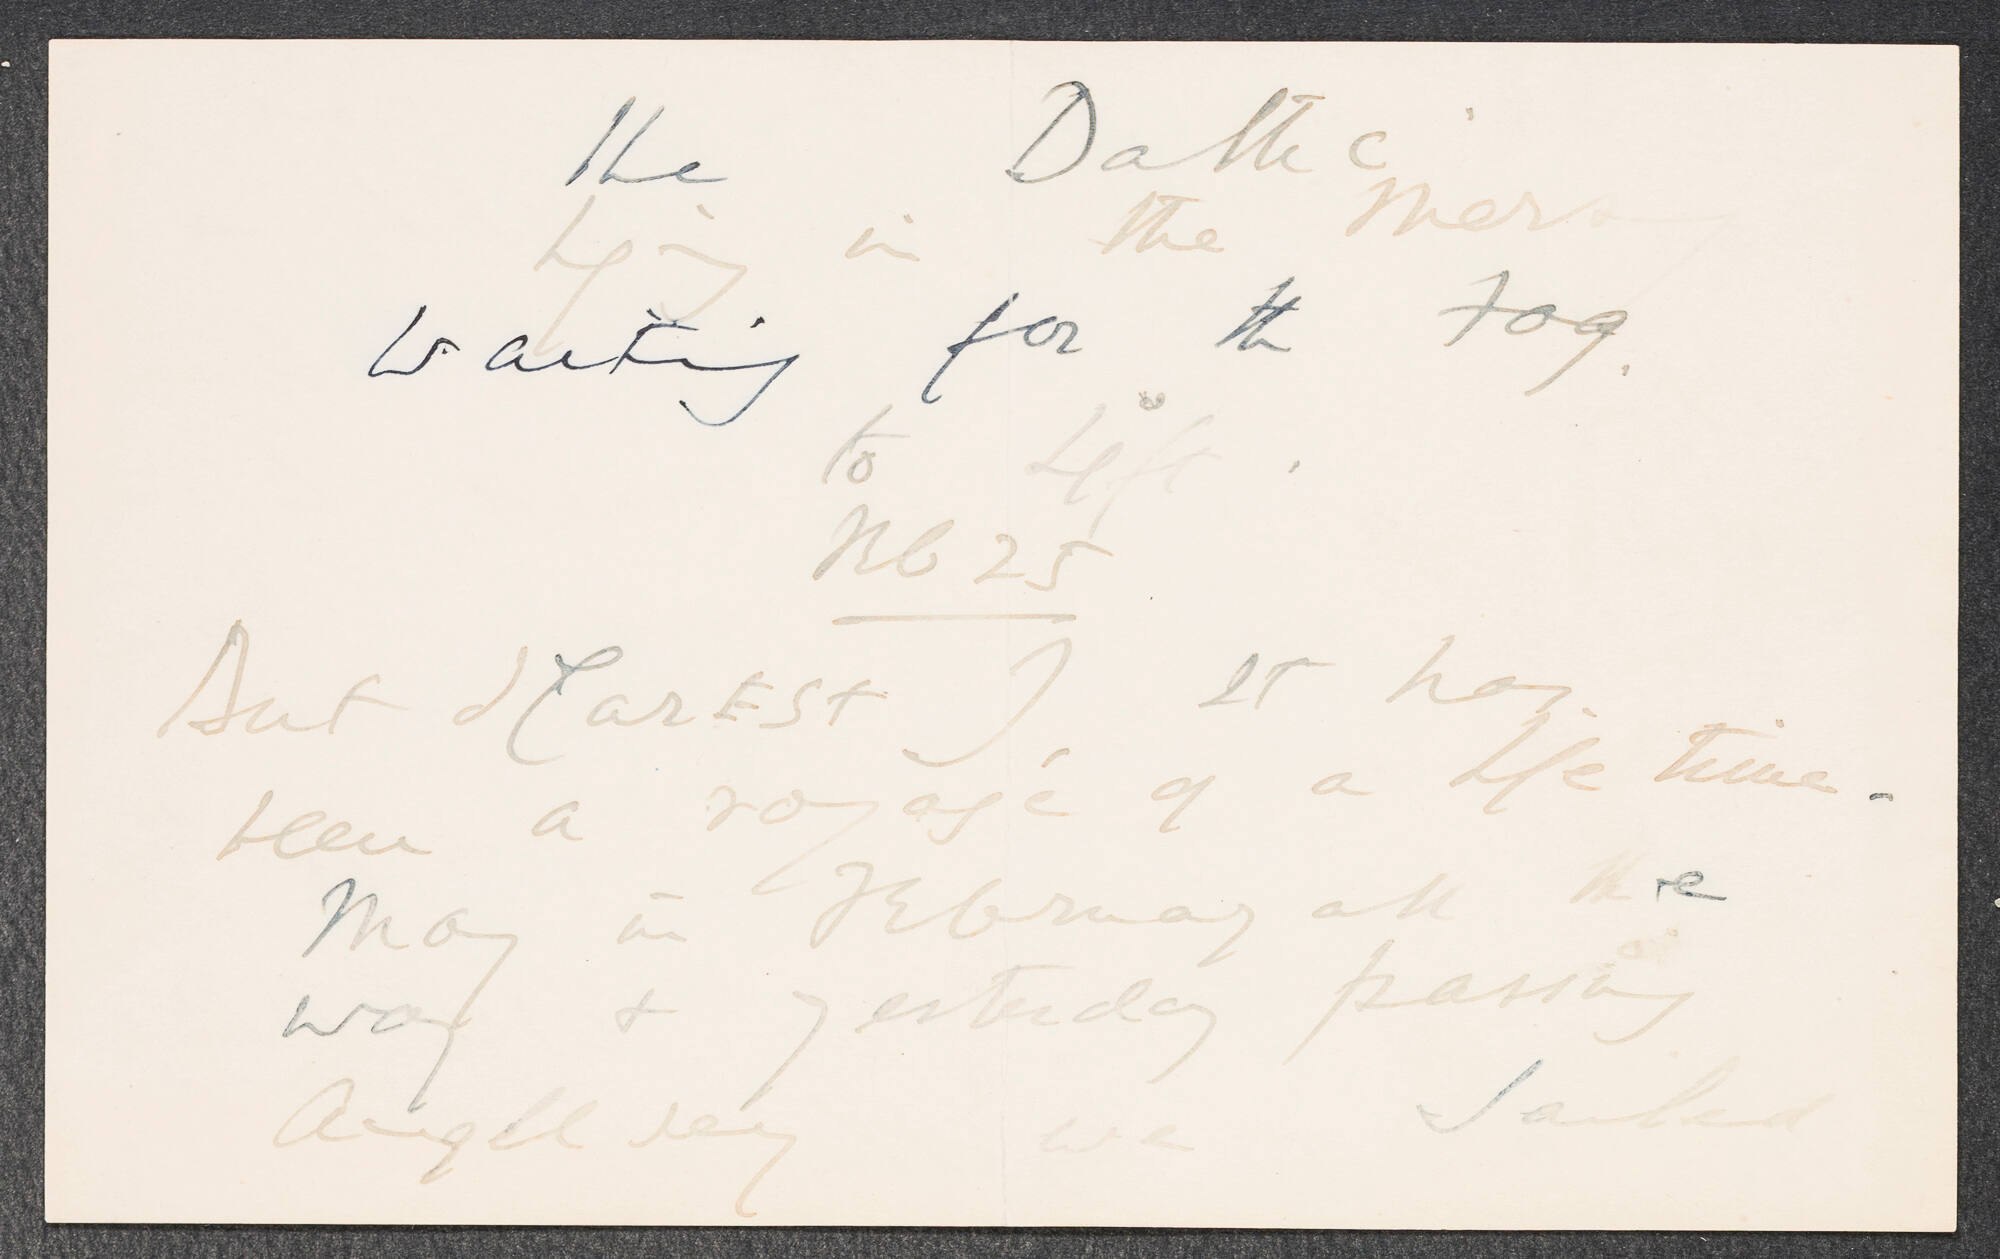 the Baltic
lying in the Mersey
waiting for the fog.
to lift.
Feb 25
But dearest J it has
been a voyage of a life time -
May in February all the
way + yesterday passing
Anglesey we sailed